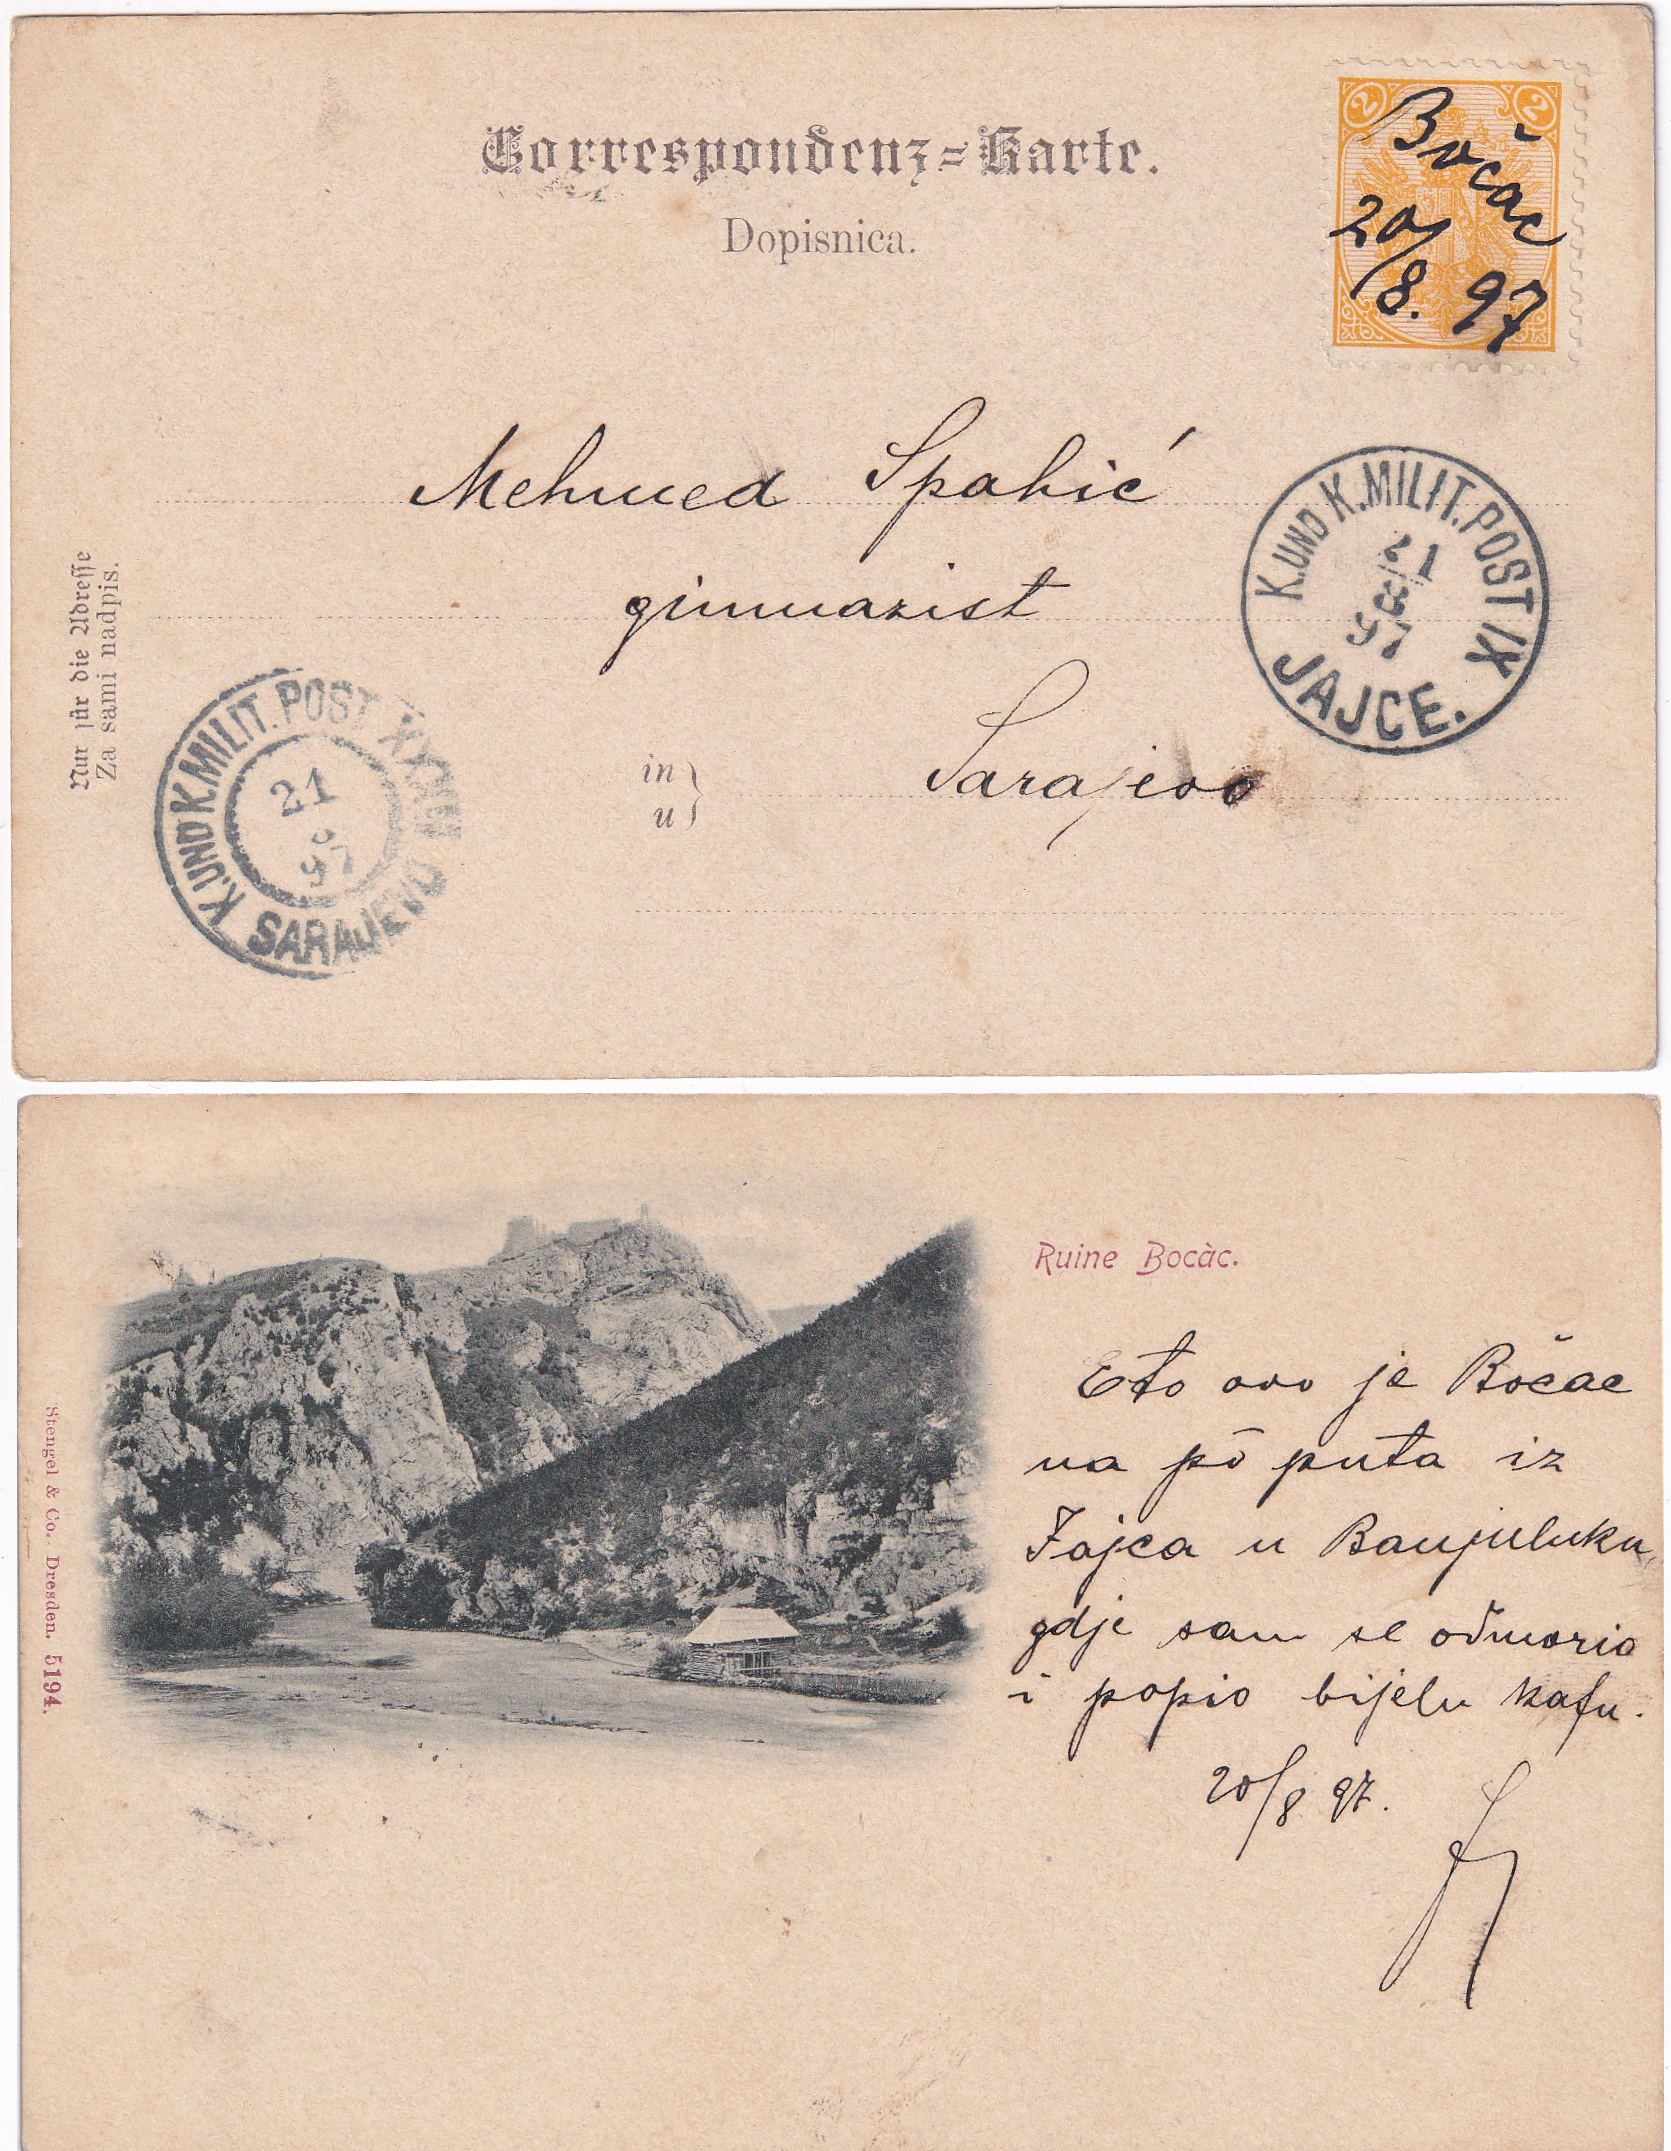 Correspondenz=Karte.
Dopisnica.
2 2
Bočac
20/8. 97
Mehmed Spahić
gimnazist
in
u
Sarajevo
Nur für die Adresse
Za sami nadpis.
K. UND K. MILIT. POST IX
21
8
97
JAJCE.
K. UND K. MILIT. POST
21
8
97
SARAJEVO
Ruine Bocàc.
Eto ovo je Bočac
na pō puta iz
Jajca u Banjuluku,
gdje sam se odmorio
i popio bijelu kafu.
20/8 97.
Stengel & Co., Dresden. 5194.